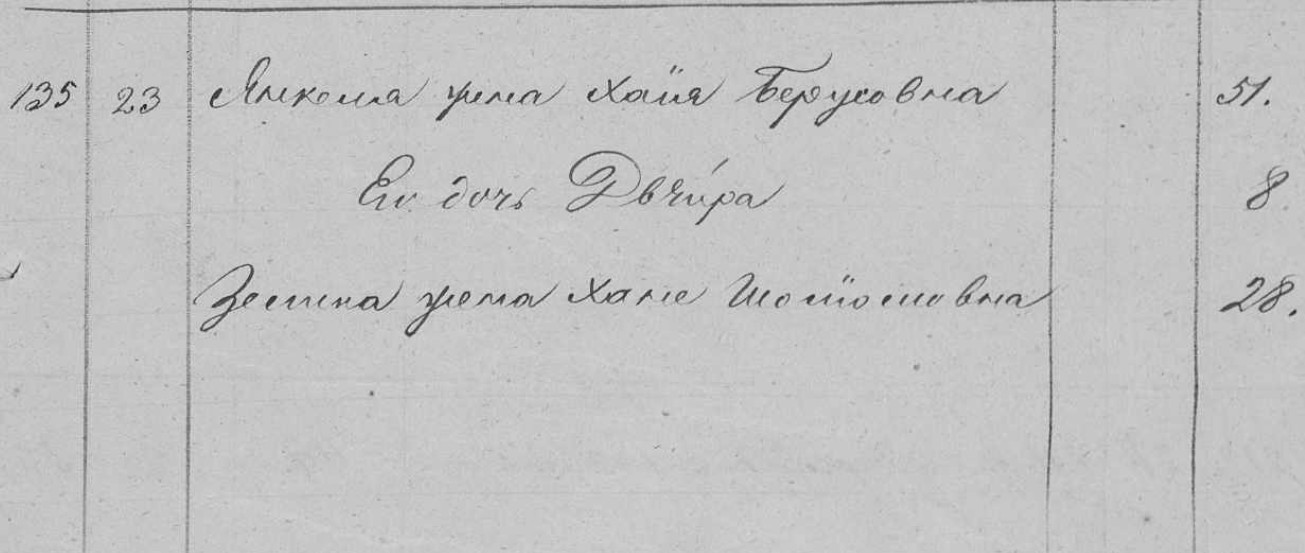 135 23 Янкеля жена Хайя Берковна 51.
Ею дочь Двейра 8
Зелика жена Хане 28.